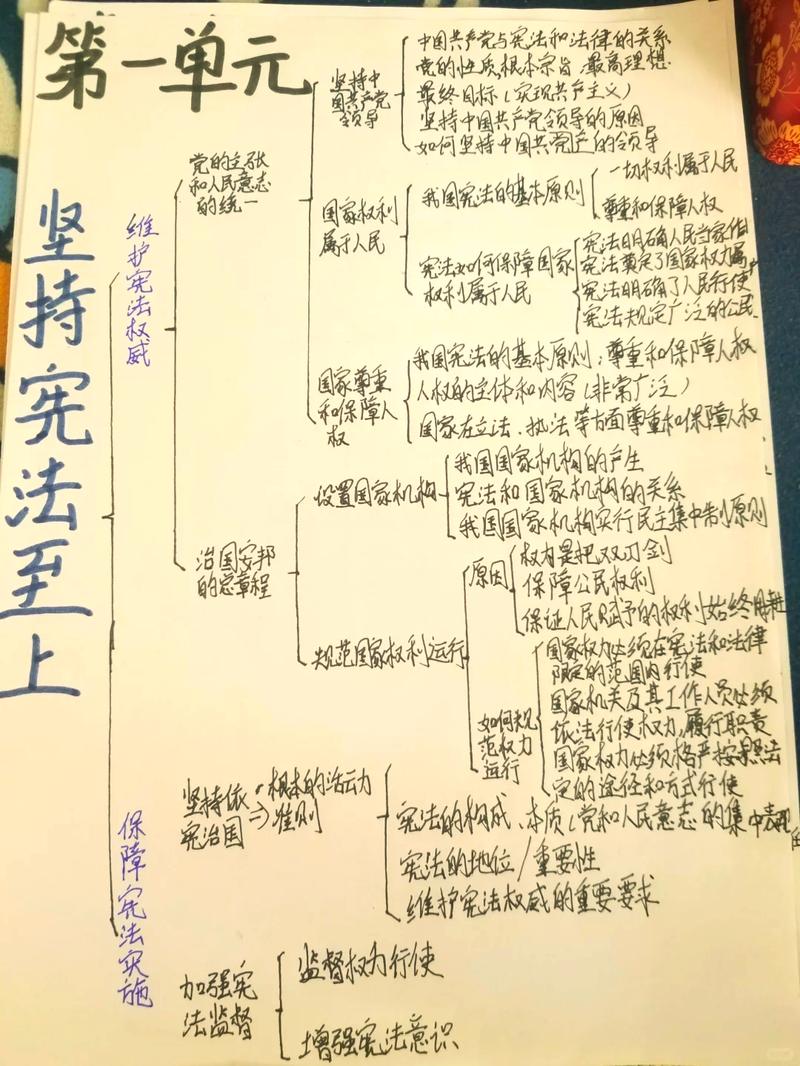 第一单元
坚持宪法至上
维护宪法权威
党的主张
和人民意志
的统一
坚持中
国共产党
领导
中国共产党与宪法和法律的关系
党的性质、根本宗旨、最高理想
最终目标(实现共产主义)
坚持中国共产党领导的原因
如何坚持中国共党产的领导
国家权利
属于人民
我国宪法的基本原则
一切权利属于人民
尊重和保障人权
宪法如何保障国家
权利属于人民
宪法明确人民当家作
宪法奠定了国家权力属
宪法明确了人民行使
宪法规定广泛的公民
国家尊重
和保障人
权
我国宪法的基本原则:尊重和保障人权
人权的主体和内容(非常广泛)
国家在立法、执法等方面尊重和保障人权
治国安邦
的总章程
设置国家机构
我国国家机构的产生
宪法和国家机构的关系
我国国家机构实行民主集中制原则
规范国家权利运行
原因
权力是把双刃剑
保障公民权利
保证人民赋予的权利始终用来
如何规
范权力
运行
国家权力必须在宪法和法律
限定的范围内行使
国家机关及其工作人员必须
依法行使权力,履行职责
国家权力必须格严按照法
定的途径和方式行使
保障宪法实施
坚持依
宪治国
⇒根本的活动力
准则
宪法的构成、本质(党和人民意志的集中表现
宪法的地位/重要性
维护宪法权威的重要要求
加强宪
法监督
监督权力行使
增强宪法意识